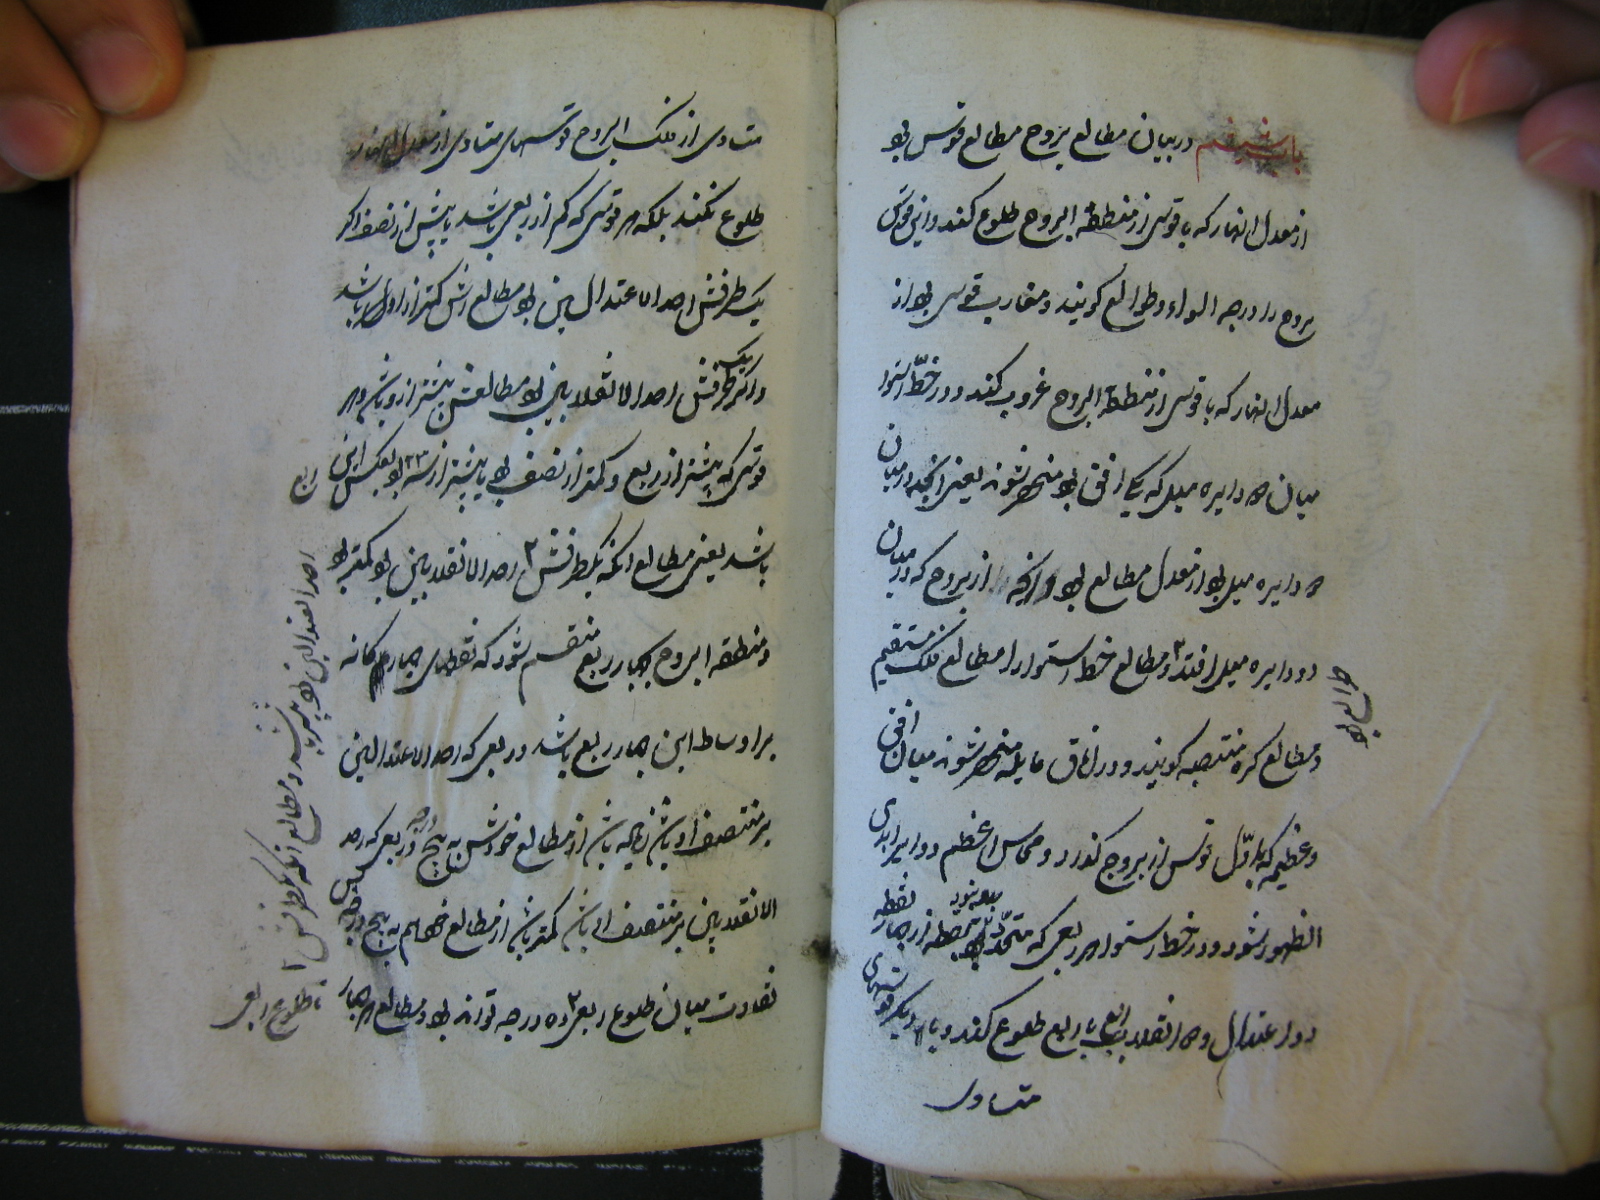 باب ششم در بیان مطالع بروج مطالع قوسی بود
از معدل النهار که با قوسی از منطقة البروج طلوع کند و این قوس
بروج را درجه السواء و طوالع کویند و مغارب قوسی بود از
معدل النهار که با قوسی از منطقة البروج غروب کند و در خط استوا
میان دو دایره میل که یکی افق بود منحصر شوند یعنی آنچه در میان
دو دایره میل بود از معدل مطالع بود و آنچه از بروج که در میان
دو دایره میل افتد و مطالع خط استوا را مطالع فلک مستقیم
و مطالع کره منتصبه کویند و در آفاق مایله منحصر شوند میان افق
و عظیمه که باول قوس از بروج کذرد و مماس اعظم دوایر ابدی
الظهور شود و در خط استوا هر ربعی که محدود بود بدو نقطه از چهار نقطه
دو اعتدال و دو انقلاب با ربع طلوع کند و با دیگر قوسهای
متساوی
متساوی از فلک البروج قوسهای متساوی از معدل النهار
طلوع نکند بلکه هر قوسی که کم از ربعی باشد یا بیش از نصف اکر
یک طرفش احد الاعتدالین بود مطالعش کمتر از او باشد
و اکر یک طرفش احد الانقلابین بود مطالعش بیشتر از و باشد و هر
قوسی که بیشتر از ربع و کمتر از نصف بود یا بیشتر از سه ربع بود بعکس این
باشد یعنی مطالع آنکه یکطرفش احد الانقلابین بود کمتر بود
احد الاعتدالین بود بیشتر باشد و مطالع آنکه یکطرفش
و منطقه البروج بچهار ربع منقسم شود که نقطهای چهارکانه
بر اوساط این چهار ربع باشد و ربعی که احد الاعتدالین
بر منتصف او باشد زیاده باشد از مطالع خودش به پنج درجه و ربعی که احد
الانقلابین بر منتصف او باشد کمتر باشد از مطالع خود هم به پنج درجه پس
تفاوت میان طلوع ربعی ده درجه تواند بود و مطالع هر چهار
تا طلوع ربعی